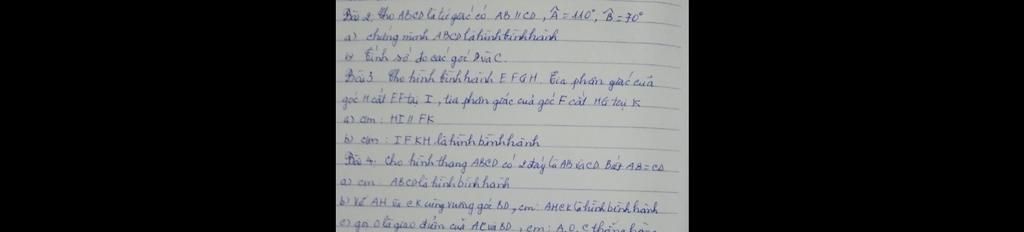 Bài 2. Cho ABCD là tứ giác có AB // CD, Â = 110°, B̂ = 70°
a) chứng minh ABCD là hình bình hành
b) Tính số đo các góc D và C.
Bài 3 Cho hình bình hành EFGH. Tia phân giác của
góc H cắt EF tại I, tia phân giác của góc F cắt HG tại K
a) cm: HI // FK
b) cm: IFKH là hình bình hành
Bài 4. Cho hình thang ABCD có 2 đáy là AB và CD. Biết AB = CD
a) cm: ABCD là hình bình hành
b) Vẽ AH và CK cùng vuông góc BD, cm: AHCK là hình bình hành
c) gọi O là giao điểm của AC và BD, cm: A, O, C thẳng hàng